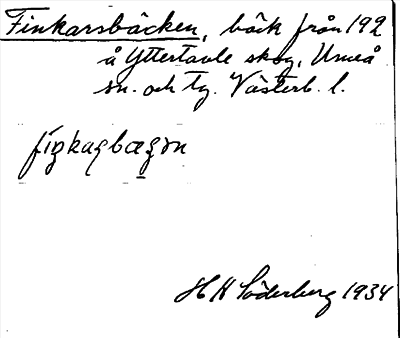 Finkarsbäcken, bäck från 192
å Yttertavle skog, Umeå
sn. och tg. Västerb. l.
H H Söderberg 1934